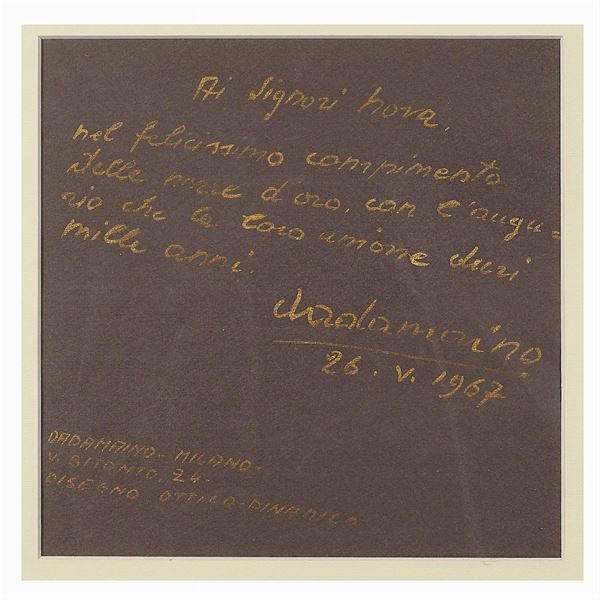 Ai Signori hova,
nel felicissimo compimento
delle nozze d'oro, con l'augu=
rio che la loro unione duri
mille anni.
dadamaino
26. V. 1967
DADAMAINO - MILANO -
V. BITONTO, 24 -
DISEGNO OTTICO-DINAMICO